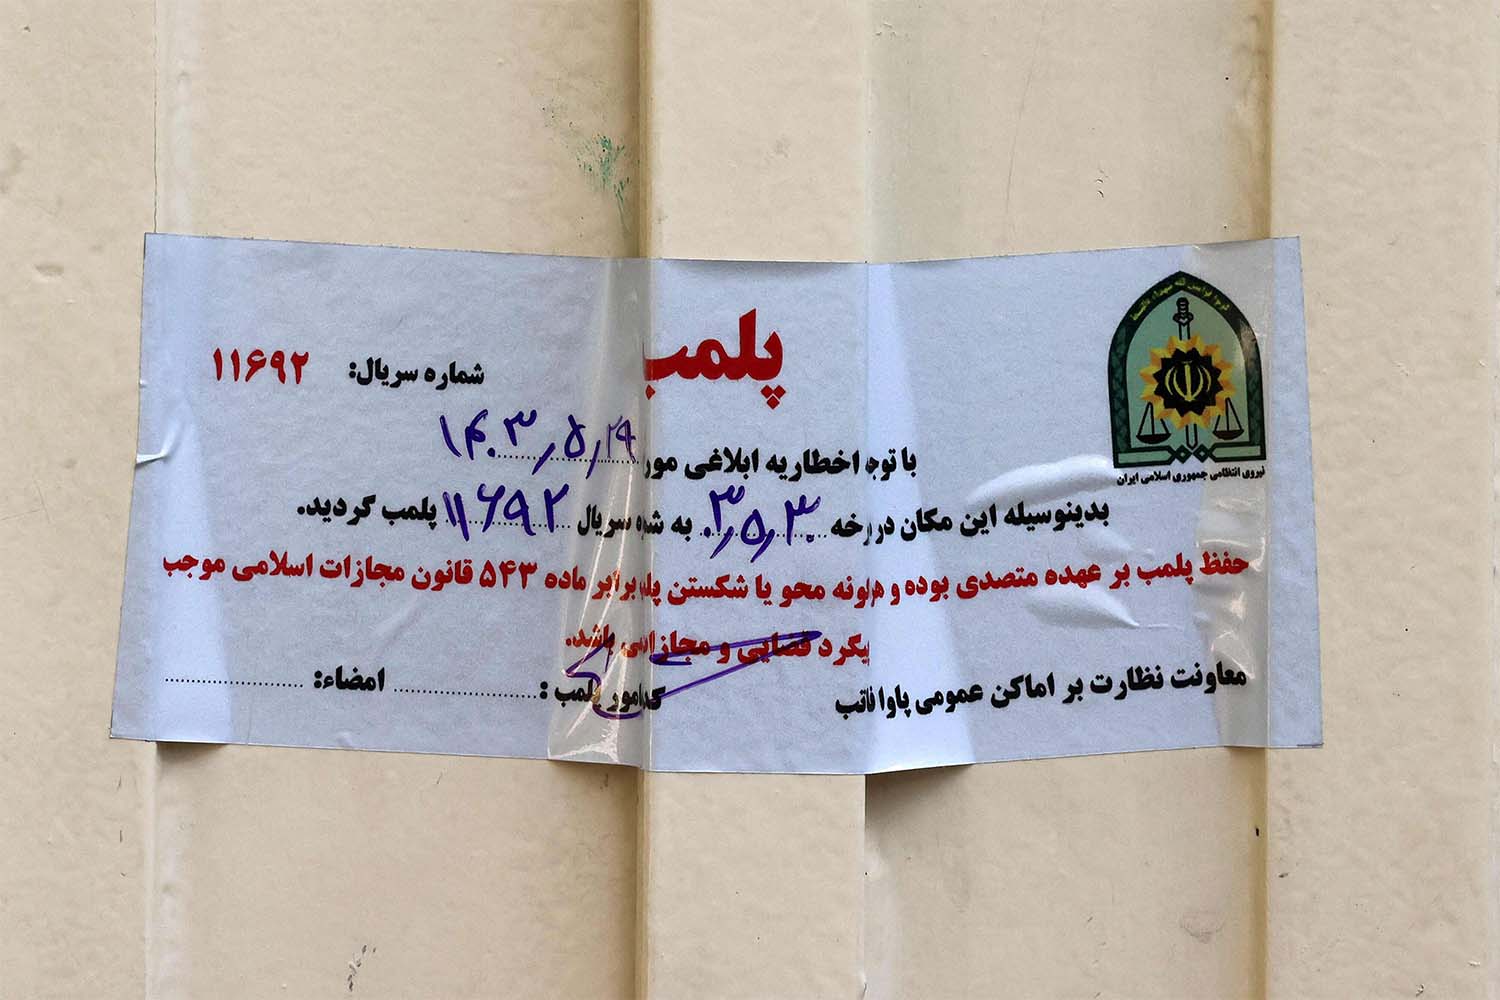 پلمب
شماره سریال: ۱۱۶۹۲
نیروی انتظامی جمهوری اسلامی ایران
با توجه اخطاریه ابلاغی مور ۱۴۰۳/۵/۲۹
بدینوسیله این مکان در مورخه ۰۳/۵/۳۰ به شماره سریال ۱۱۶۹۲ پلمب گردید.
حفظ پلمب بر عهده متصدی بوده و هرگونه محو یا شکستن پلمب برابر ماده ۵۴۳ قانون مجازات اسلامی موجب
پیگرد قضایی و مجازات می باشد.
معاونت نظارت بر اماکن عمومی پاوا فاتب
کد مامور پلمب : امضاء: